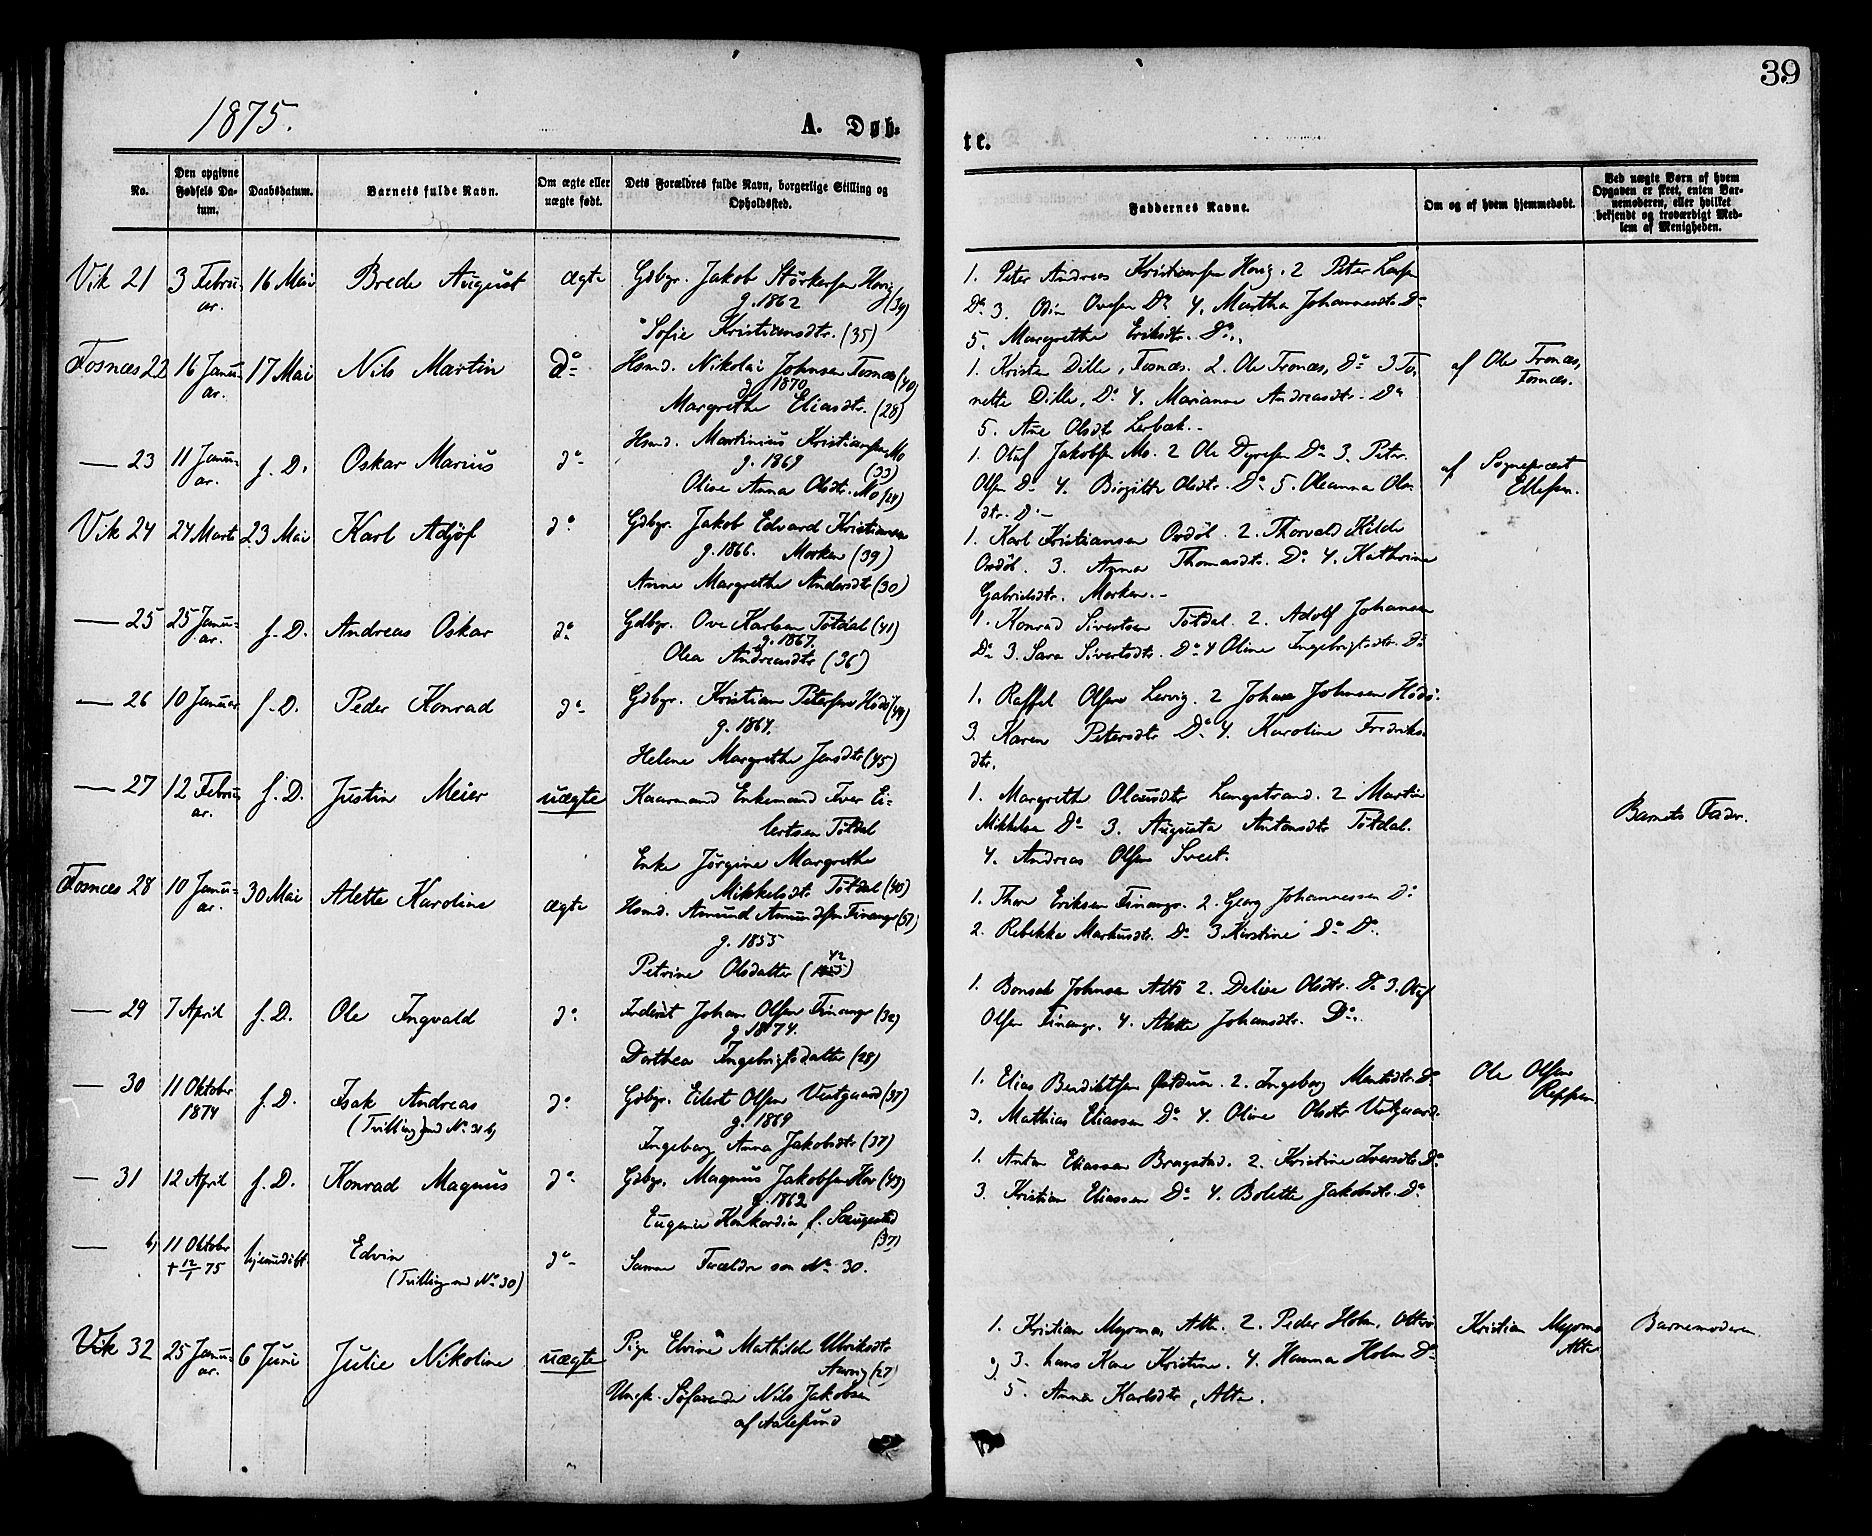 39
1875.
A. Døb-
te.
No.
Den opgivne Fødsels Da-tum.
Daabsdatum.
Barnets fulde Navn.
Om ægte eller uægte født.
Dets Forældres fulde Navn, borgerlige Stilling og Opholdssted.
Faddernes Navne.
Om og af hvem hjemmedøbt.
Ved uægte Børn af hvem Opgaven er skeet, enten Bar-nemoderen, eller hvilket bekjendt og troværdigt Med-lem af Menigheden.
Vik 21 3 Febru-ar. 16 Mai Brede August ægte Gdbgr. Jakob Störkersen Hovig (34)
g. 1862
Sofie Kristiansdtr. (35)
1. Peter Andreas Kristiansen Hovig. 2 Peter
Do 3. Odin Ovesen Do 4. Martha Johannesdtr. Do
5. Margrethe Eriksdtr. Do.
Fosnæs 22 16 Janu-ar. 17 Mai Nils Martin do Hsmd. Nikolai Johnsen Fosnæs (40)
g. 1870
Margrethe Eliasdtr. (28)
1. Kristen Dille, Fosnæs. 2. Ole Fronæs, Do 3 To-
nette Dille, Do 4. Marianne Andreasdtr. Do
5. Ane Olsdtr Lerbæk.
af Ole Fronæs, Fosnæs.
— 23 11 Janu-ar. f. D. Oskar Marius do Hsmd. Martinius Kristiansen Mo (33)
g. 1869
Oline Anna Olsdtr. Mo (28)
1. Oluf Jakobsen Mo. 2 Ole Dyresen Do 3. Peter
Olsen Do 4. Birgitte Olsdtr. Do 5. Oleanna Ols-
dtr. Do
af Sognepræst Ellefsen.
Vik 24 24 Marts 23 Mai Karl Adjöf do Gdbgr. Jakob Edvard Kristiansen
g. 1866. Morken (39)
Anne Margrethe Andersdtr (30)
1. Karl Kristiansen Ordöl. 2. Thorvald Kilde
Ordöl. 3. Anna Thomasdtr. Do 4. Kathrine
Gabrielsdtr. Morken.
— 25 25 Janu-ar. f. D. Andreas Oskar do Gdbgr. Ove Karlsen Tötdal (41)
g. 1867.
Olea Andreasdtr (36)
1. Konrad Sivertsen Tötdal. 2. Adolf Johansen
Do 3. Sara Sivertsdtr. Do 4 Oline Ingebrigtsdtr. Do
— 26 10 Januar f. D. Peder Konrad do Gdbgr. Kristian Petersen Hödö (49)
g. 1864.
Helene Margrethe Jensdtr (45)
1. Raffel Olsen Lervig. 2 Johan Johnsen Hödö.
3. Karen Petersdtr Do 4. Karoline Fredriks-
dtr.
— 27 12 Febru-ar. f. D. Justin Meier uægte Kaarmand Enkemand Iver Ei-
lertsen Tötdal
Enke Jörgine Margrethe
Mikkelsdtr Tötdal (40)
1. Margrethe Olausdtr Langstrand. 2 Martin
Mikkelsen Do 3. Augusta Antonsdtr Tötdal.
4. Andreas Olsen Sveet.
Barnets Fader.
Fosnæs 28 10 Janu-ar. 30 Mai Alette Karoline ægte Hsmd. Amund Amundsen Finangr (57)
g. 1855
Petrine Olsdatter (42)
1. Thor Eriksen Finangr. 2. Georg Johannessen Do
2. Rebekka Markusdtr. Do 3. Kirstine Do Do.
— 29 7 April f. D. Ole Ingvald do Inderst Johan Olsen Finangr (32)
g. 1874.
Dorthea Ingebrigtsdatter (28)
1. Bonsak Johnsen Altö 2. Delise Olsdtr. Do 3. Oluf
Olsen Finangr. 4. Alette Johansdtr. Do.
— 30 11 Oktober 1874 f. D. Isak Andreas do Gdbgr. Eilert Olsen Vestgaard (37)
(Tvilling med No 31 b)
g. 1869
Ingeborg Anna Jakobsdtr. (37)
1. Elias Bendiktsen 2. Ingeborg Do
3. Mathias Eliassen Do 4. Oline Olsdtr Vestgaard.
Ole Olsen Reppen
— 31 12 April f. D. Konrad Magnus do Gdbgr. Magnus Jakobsen Hov (43)
g. 1862
Eugenie Konkordia f. Saugestad (37)
1. Anton Eliassen Bragstad. 2. Kristine Iversdtr. Do
3. Kristian Eliassen Do 4. Bolette Jakobsdtr. Do
— b) 11 Oktober † 12/1 75 hjemmedöbt. Edvin do Samme Forældre som No 30.
(Tvilling med No 30)
Vik 32 25 Janu-ar. 6 Juni Julie Nikoline uægte Pige Elvine Mathilde Ulriksdtr
Aarvig (27)
Ungk. Söfarende Nils Jakobsen
af Aalesund
1. Kristian Altö. 2. Peder Holm, Otterö
3. hans Kone Kristine. 4. Hanna Holm Do
5. Anna Karlsdtr, Altö.
Kristian Altö
Barnemoderen.